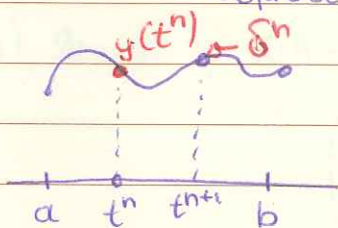 y(t^n) δ^n
a t^n t^{n+1} b